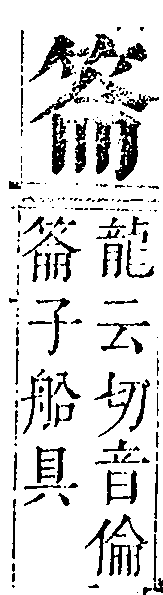 䈁
龍云切音倫
䈁子船具